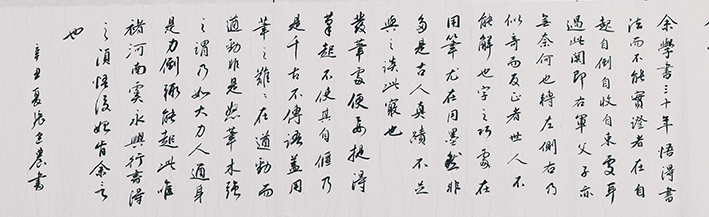 余學書三十年悟得書
法而不能實證者在自
起自倒自收自束處耳
過此関即右軍父子亦
無奈何也轉左側右乃
似奇而反正者世人不
能解也字之巧處在
用筆尤在用墨然非
多是古人真績不足
與之談此竅也
發筆處便要提得
筆起不使其自偃乃
是千古不傳語蓋用
筆之難難在遒勁而
遒勁非是怒筆木強
之謂乃如大力人通身
是力倒輒能起此惟
褚河南虞永興行書得
之須悟後始肯余言
也
辛丑夏張農書